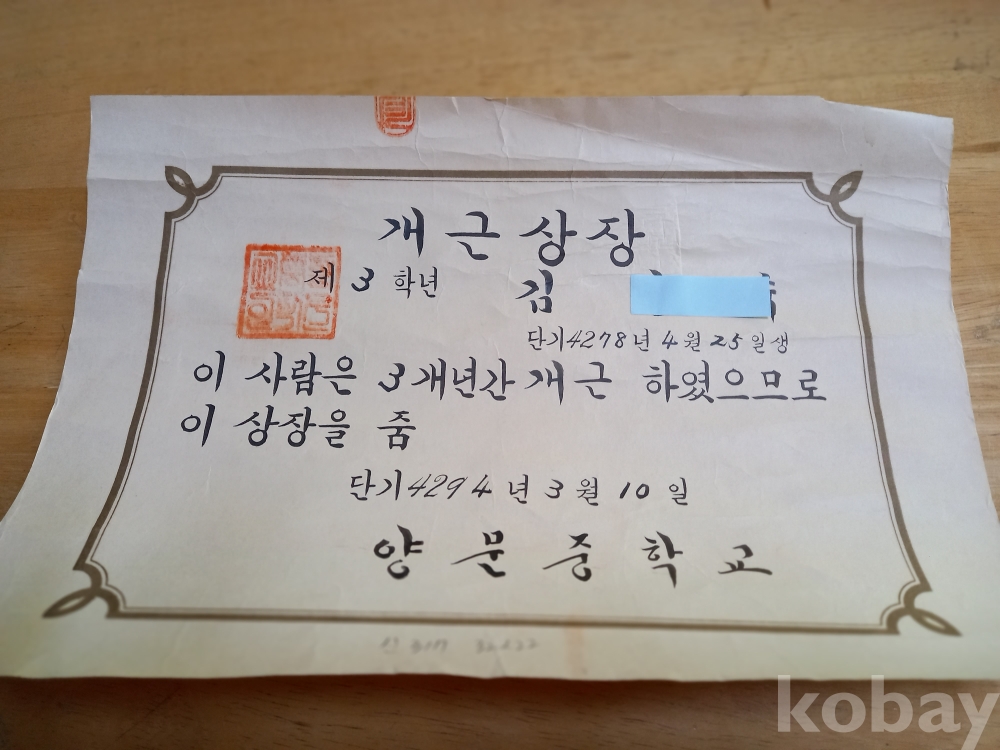 개근상장
제 3 학년 김
단기4278년 4월 25일생
이 사람은 3개년간 개근 하였으므로
이 상장을 줌
단기4294년 3월 10일
양문중학교
kobay